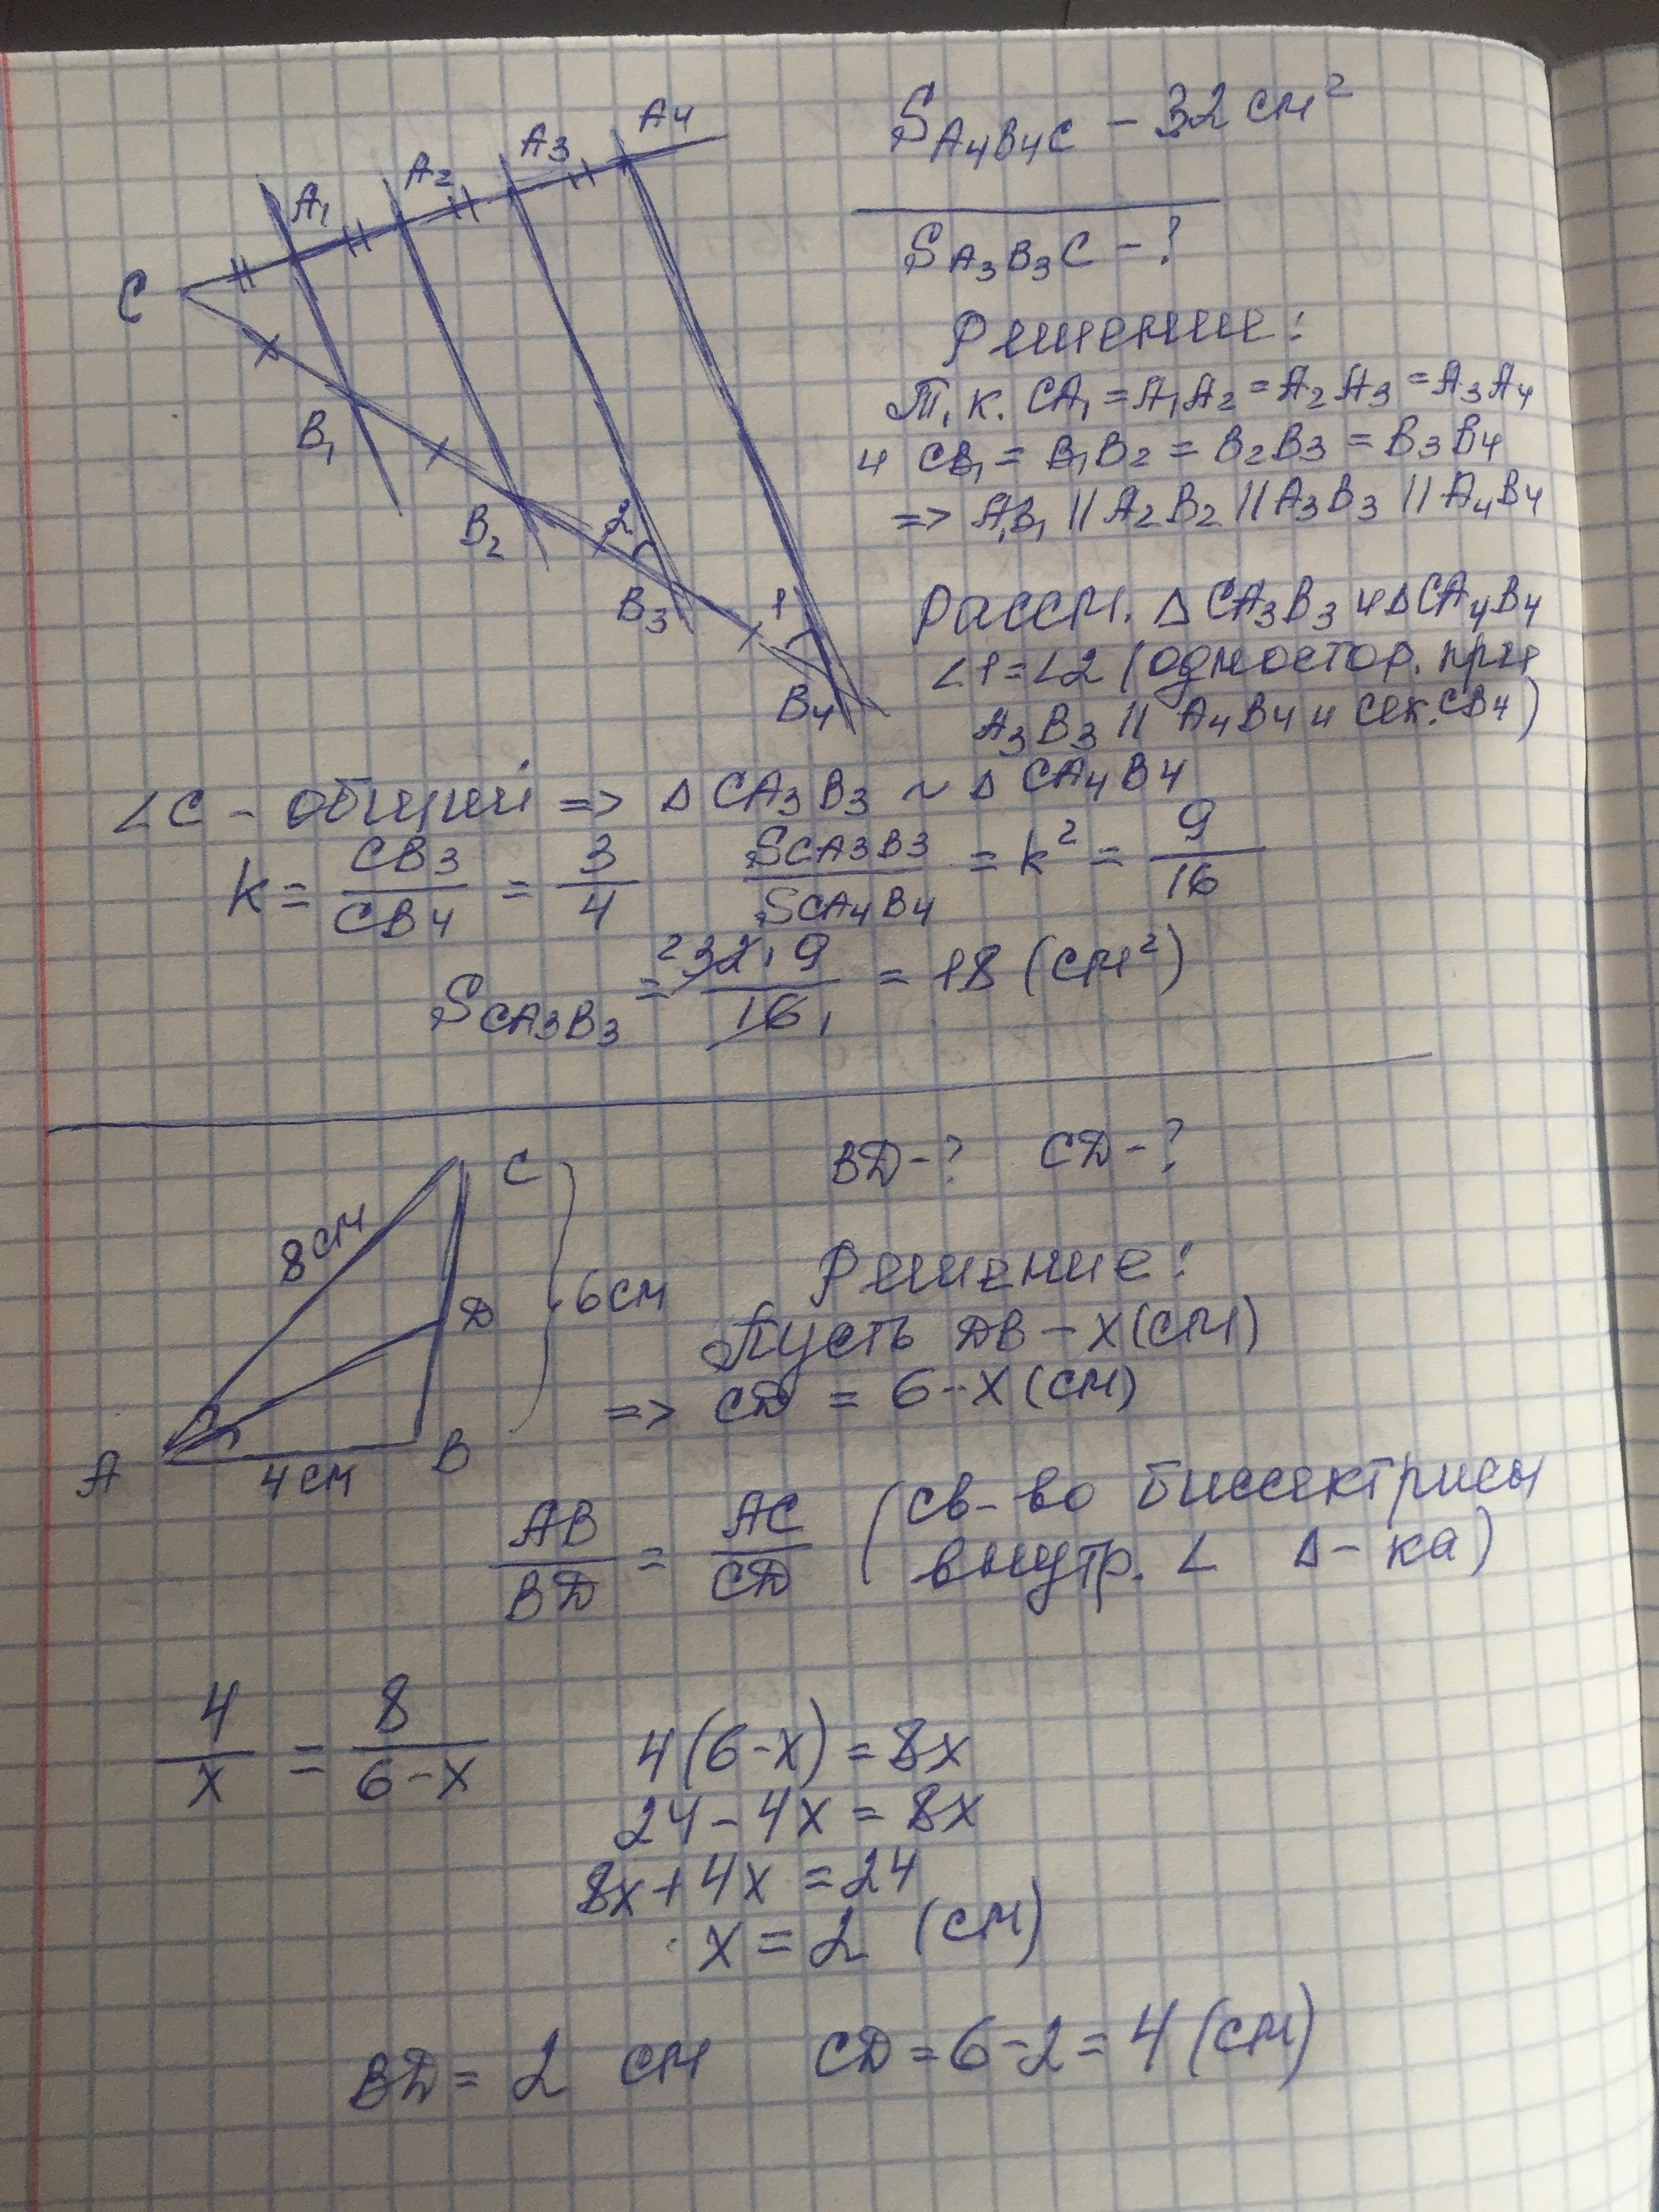 A₁ A₂ A₃ A₄
C
B₁ B₂ B₃ B₄
2 1
S A₄B₄C – 32 см²
S A₃B₃C – ?
Решение:
Т. к. CA₁ = A₁A₂ = A₂A₃ = A₃A₄
и CB₁ = B₁B₂ = B₂B₃ = B₃B₄
=> A₁B₁ || A₂B₂ || A₃B₃ || A₄B₄
Рассм. Δ CA₃B₃ и Δ CA₄B₄
∠1 = ∠2 (одностор. при
A₃B₃ || A₄B₄ и сек. CB₄)
∠C – общий => Δ CA₃B₃ ~ Δ CA₄B₄
k = CB₃/CB₄ = 3/4 S CA₃B₃/S CA₄B₄ = k² = 9/16
S CA₃B₃ = ²32 · 9/16₁ = 18 (см²)
BD – ? CD – ?
C
8 см
D
6 см
A
4 см
B
Решение:
Пусть DB – x (см)
=> CD = 6 – x (см)
AB/BD = AC/CD (св-во биссектрисы
внутр. ∠ Δ-ка)
4/x = 8/(6-x)
4(6-x) = 8x
24 – 4x = 8x
8x + 4x = 24
x = 2 (см)
BD = 2 см CD = 6 – 2 = 4 (см)